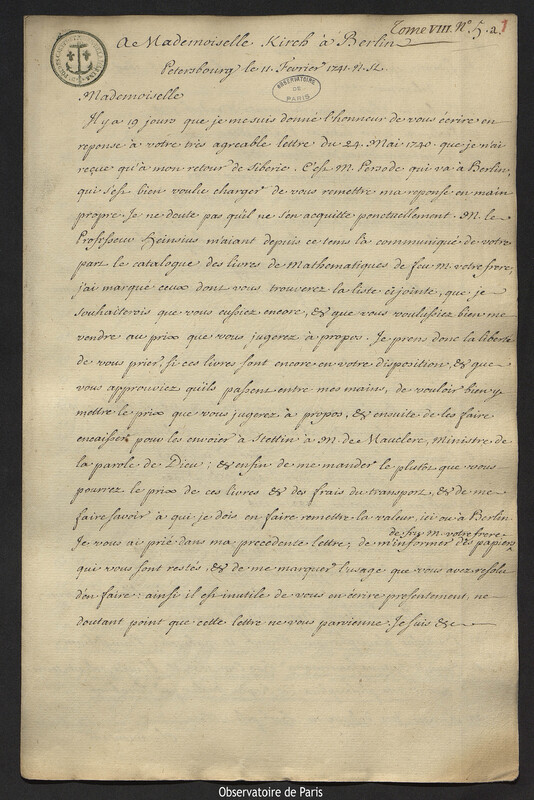 Tome VIII. N.º 5. a. 1
A Mademoiselle Kirch à Berlin
Petersbourg le 11. Fevrier 1741. N. St.
OBSERVATOIRE
DE
PARIS
Mademoiselle
Il y a 19 jours que je me suis donné l'honneur de vous écrire en
reponse à votre très agreable lettre du 24. Mai 1740. que je n'ai
reçue qu'à mon retour de Siberie. C'est M. Persode qui va à Berlin,
qui s'est bien voulu charger de vous remettre ma reponse en main
propre. Je ne doute pas qu'il ne s'en acquitte ponctuellement. M. le
Professeur Heinsius m'aiant depuis ce tems là communiqué de votre
part le catalogue des livres de Mathematiques de feu M. votre frere,
j'ai marqué ceux dont vous trouverez la liste cijointe, que je
souhaiterois que vous eussiez encore, & que vous voulussiez bien me
vendre au prix que vous jugerez à propos. Je prens donc la liberté
de vous prier, si ces livres sont encore en votre disposition, & que
vous approuviez qu'ils passent entre mes mains, de vouloir bien y
mettre le prix que vous jugerez à propos, & ensuite de les faire
encaisser pour les envoier à Stettin à M. de Mauclerc, Ministre de
la parole de Dieu; & enfin de me mander le plutôt que vous
pourrez le prix de ces livres & des frais du transport, & de me
faire savoir à qui je dois en faire remettre la valeur, ici ou à Berlin.
de feu M. votre frere
Je vous ai prié dans ma precedente lettre, de m'informer des papiers
qui vous sont restés, & de me marquer l'usage que vous avez resolu
d'en faire: ainsi il est inutile de vous en écrire presentement, ne
doutant point que cette lettre ne vous parvienne. Je suis &c
Observatoire de Paris